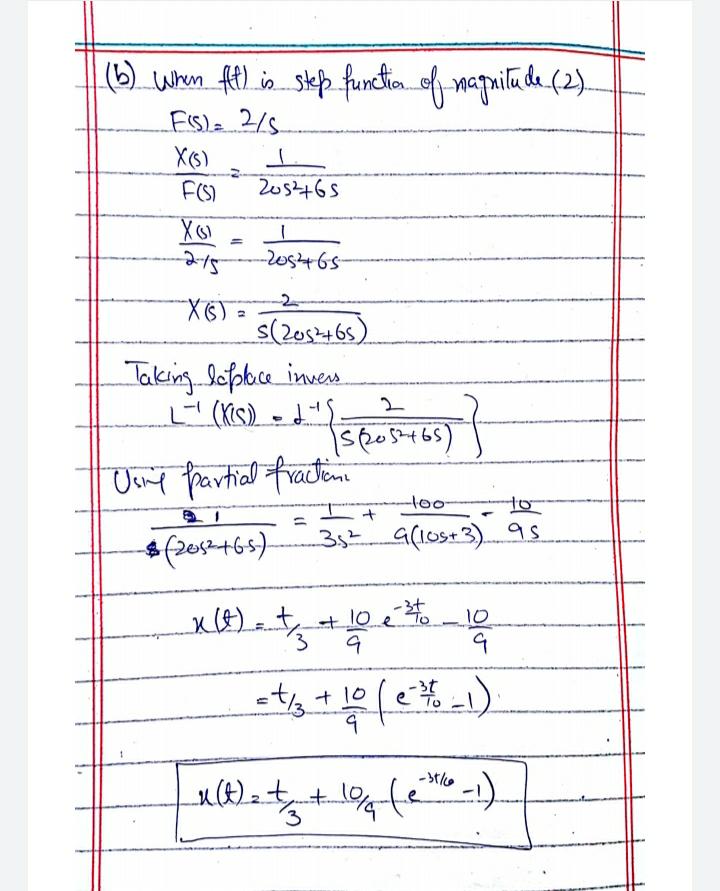 (b) When f(t) is step function of magnitude (2)
F(s) = 2/s
X(s)/F(s) = 1/20s²+6s
X(s)/2/s = 1/20s²+6s
X(s) = 2/s(20s²+6s)
Taking laplace invers
L⁻¹ (X(s)) = L⁻¹ { 2/s(20s²+6s) }
Using partial fraction
1/(20s²+6s) = 1/3s² + 100/9(10s+3) - 10/9s
x(t) = t/3 + 10/9 e^-3t/10 - 10/9
= t/3 + 10/9 ( e^-3t/10 - 1 )
x(t) = t/3 + 10/9 ( e^-3t/10 - 1 )